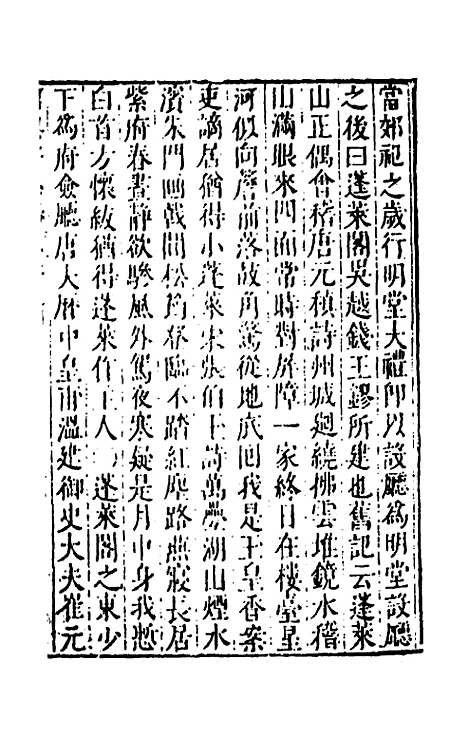 當郊祀之歲行明堂大禮即以設廳爲明堂設廳
之後曰蓬萊閣吳越錢王鏐所建也舊記云蓬萊
山正偶會稽唐元稹詩州城迴繞拂雲堆鏡水稽
山滿眼來四面常時對屏障一家終日在樓臺星
河似向簷前落鼓角驚從地底回我是玉皇香案
吏謫居猶得小蓬萊宋張伯玉詩萬疊湖山煙水
濱朱門畫戟間松筠春臨不踏紅塵路燕寢長居
紫府春晝靜欲驂風外駕夜寒疑是月中身我慙
白首方懷紱猶得蓬萊作主人 蓬萊閣之東少
下爲府僉廳唐大曆中皇甫溫建御史大夫崔元